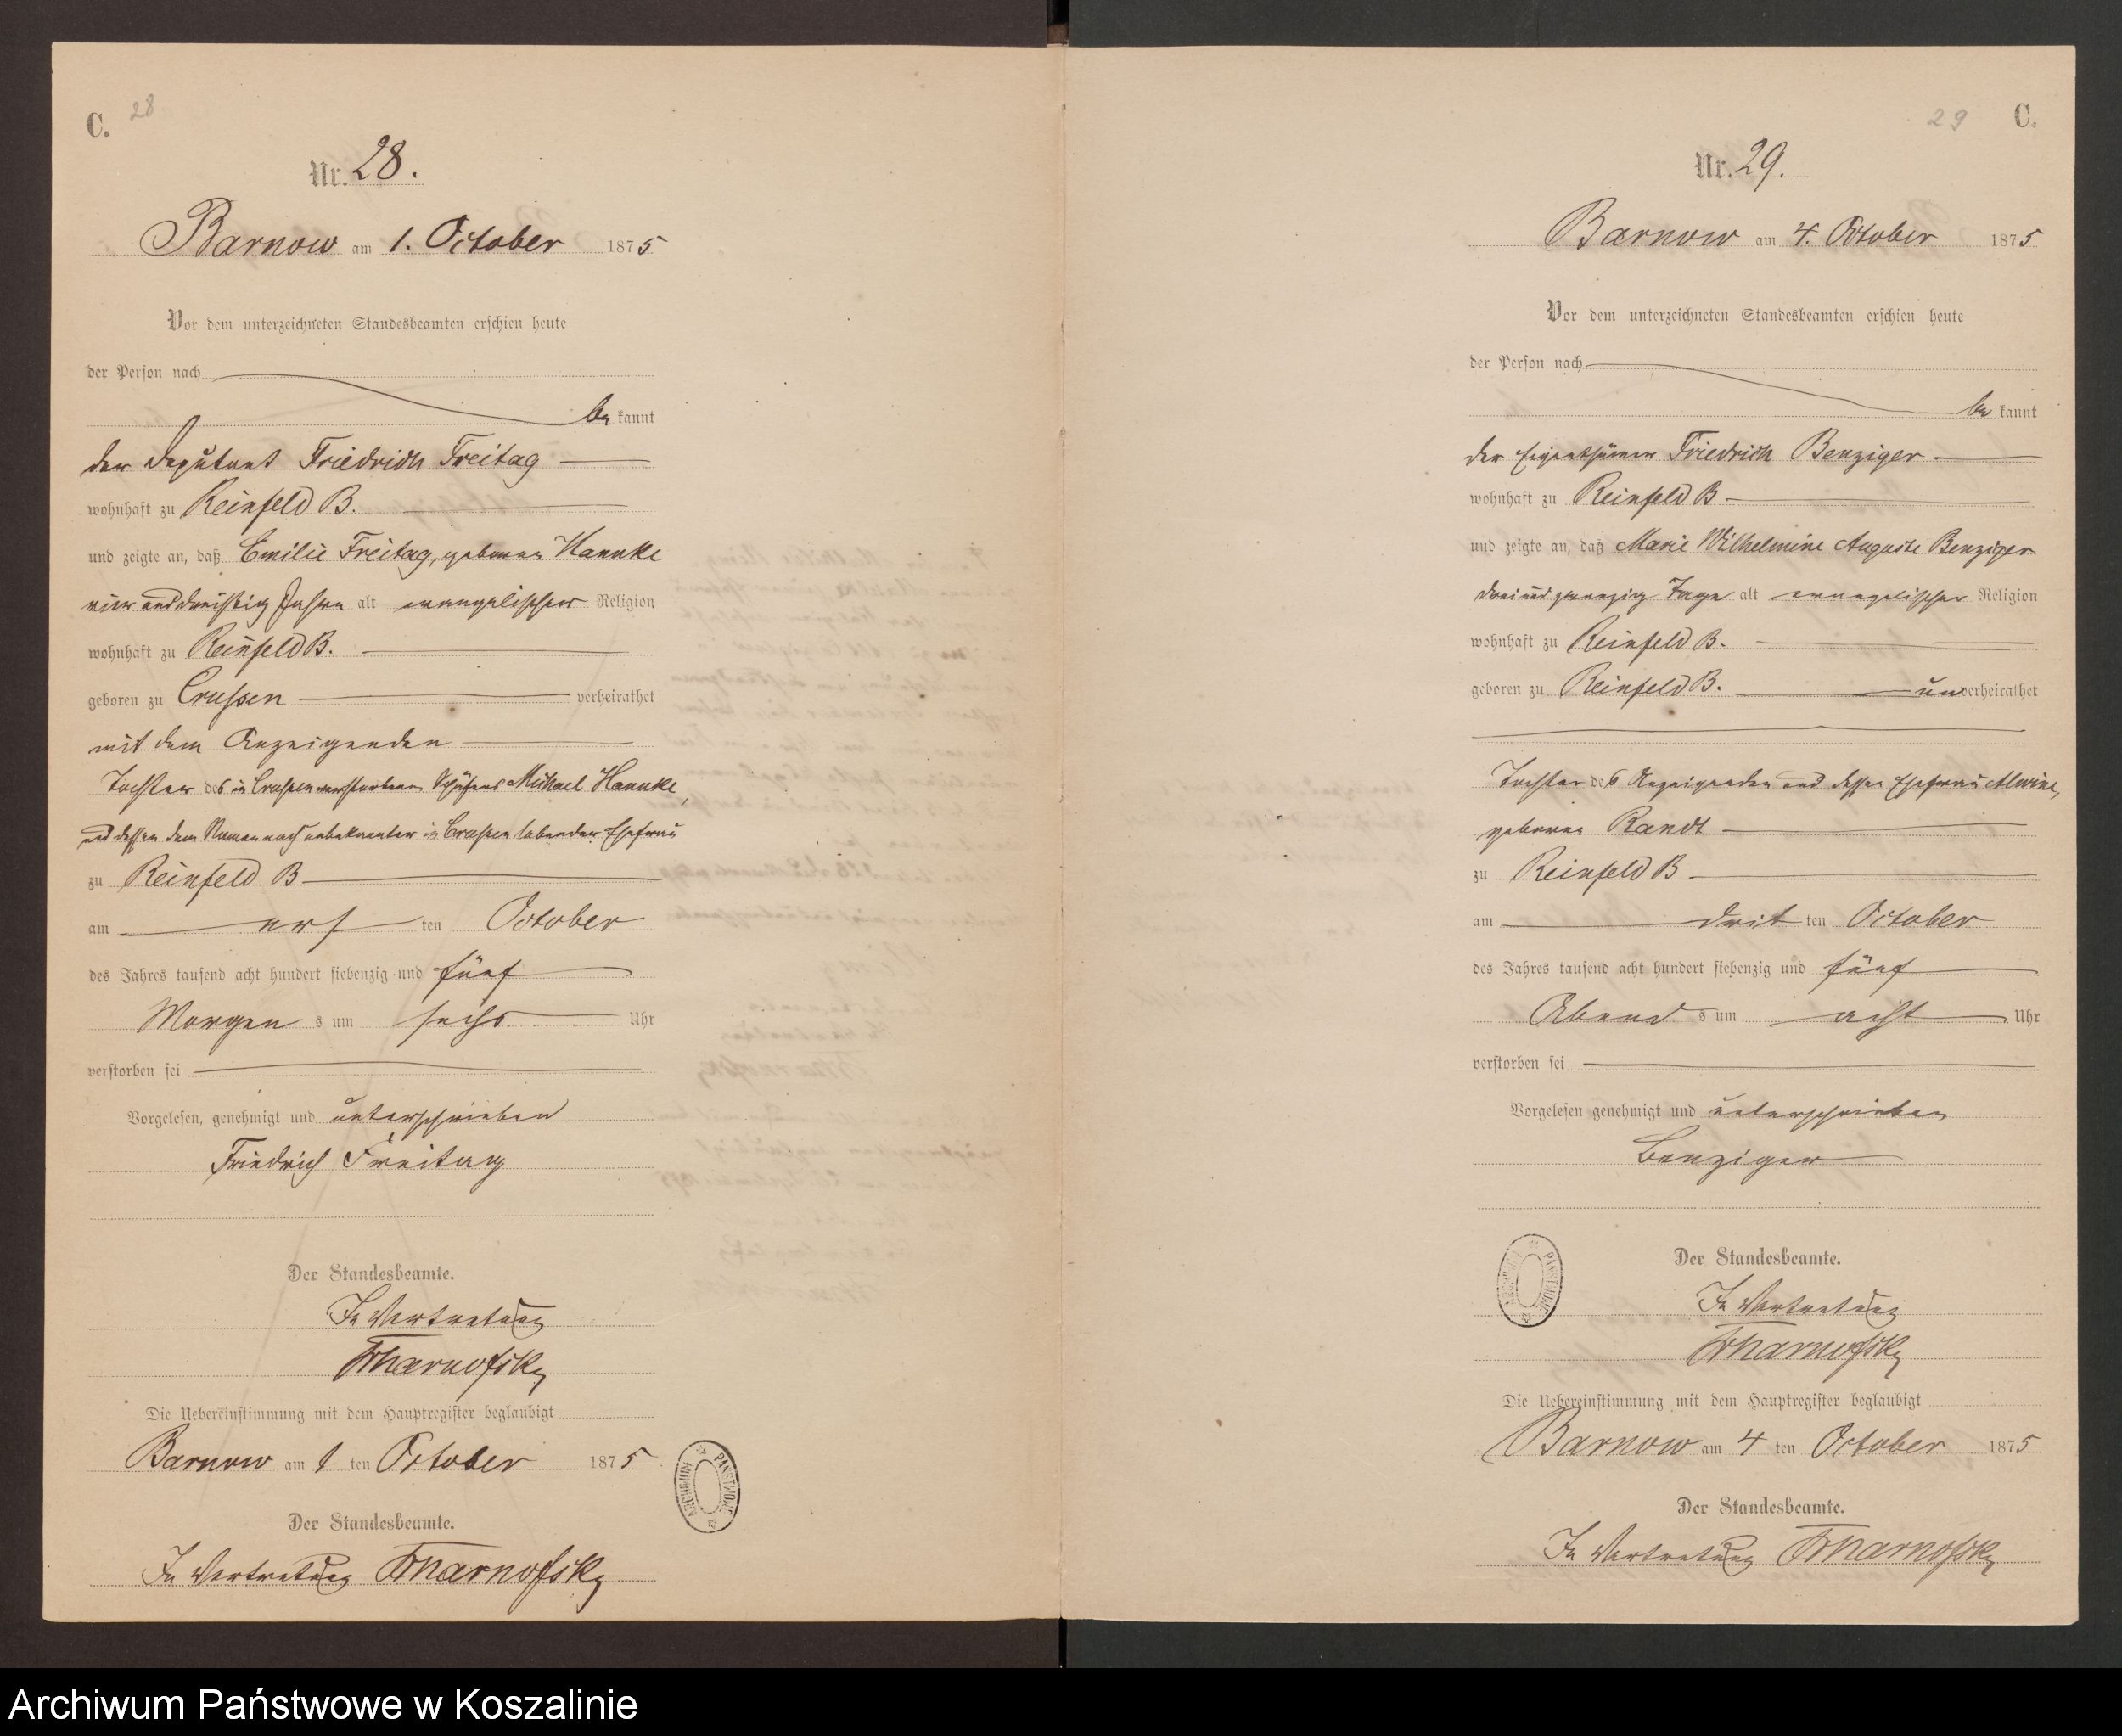 C. 28
Nr. 28.
Barnow am 1. October 1875
Vor dem unterzeichneten Standesbeamten erschien heute
der Person nach
be kannt
der Deputant Friedrich Freitag
wohnhaft zu Reinfeld B.
und zeigte an, daß Emilie Freitag, geborene Hannke
vier und dreißig Jahre alt evangelischer Religion
wohnhaft zu Reinfeld B.
geboren zu Crussen verheirathet
mit dem Anzeigenden
Tochter des in Crussen verstorbenen Schäfers Michael Hannke,
und dessen dem Namen nach unbekannter in Crussen lebender Ehefrau
zu Reinfeld B
am ers ten October
des Jahres tausend acht hundert siebenzig und fünf
Morgen s um sechs Uhr
verstorben sei
Vorgelesen, genehmigt und unterschrieben
Friedrich Freitag
Der Standesbeamte.
In Vertretung
Die Uebereinstimmung mit dem Hauptregister beglaubigt
Barnow am 1 ten October 1875
Der Standesbeamte.
In Vertretung
ARCHIWUM PAŃSTWOWE
29 C.
Nr. 29.
Barnow am 4. October 1875
Vor dem unterzeichneten Standesbeamten erschien heute
der Person nach
be kannt
der Eigenthümer Friedrich Benziger
wohnhaft zu Reinfeld B
und zeigte an, daß Marie Wilhelmine Auguste Benziger
drei und zwanzig Tage alt evangelischer Religion
wohnhaft zu Reinfeld B.
geboren zu Reinfeld B. unverheirathet
Tochter des Anzeigenden und dessen Ehefrau Alwine,
geborene Randt
zu Reinfeld B
am drit ten October
des Jahres tausend acht hundert siebenzig und fünf
Abend s um acht Uhr
verstorben sei
Vorgelesen genehmigt und unterschrieben
Benziger
Der Standesbeamte.
In Vertretung
ARCHIWUM PAŃSTWOWE
Die Uebereinstimmung mit dem Hauptregister beglaubigt
Barnow am 4 ten October 1875
Der Standesbeamte.
In Vertretung
Archiwum Państwowe w Koszalinie